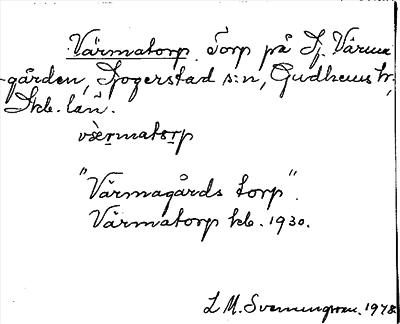 Värmatorp. Torp på St. Värma
-gården, Segerstad s:n, Gudhems hr,
Skb. län.
vèrmatorp
"Värmagårds torp".
Värmatorp kb. 1930.
L M. Svenungsson. 1978.